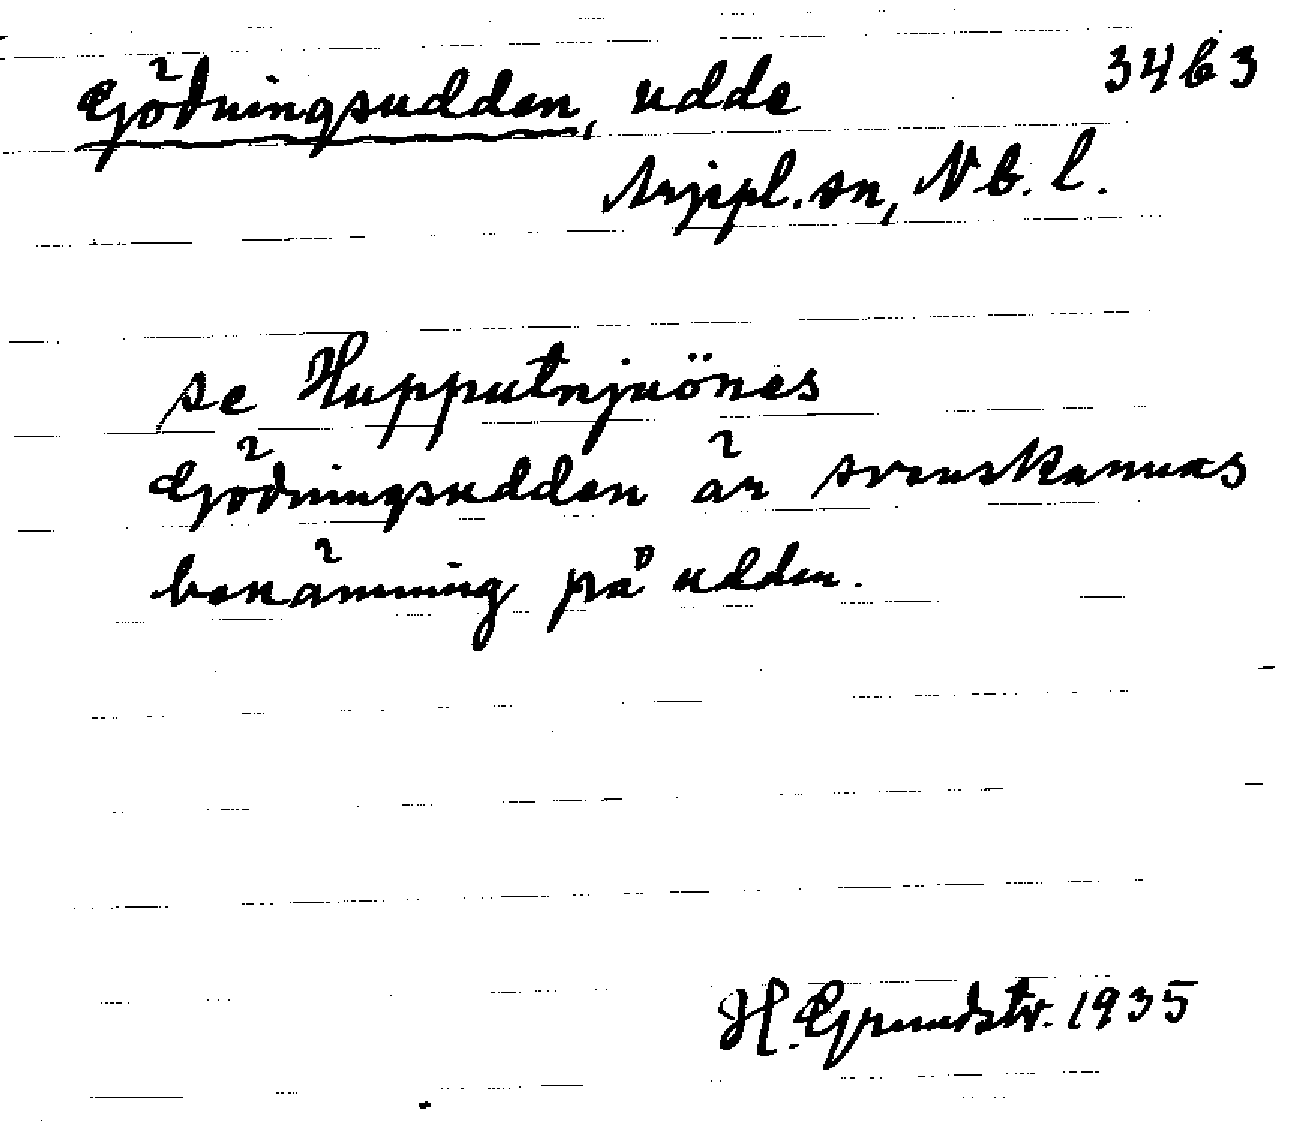 Gödningsudden, udde 3463
Arjepl. sn, Nb. l.
se Hupputnjuönes
Gödningsudden är svenskarnas
benämning på udden.
H. Grundstr. 1935